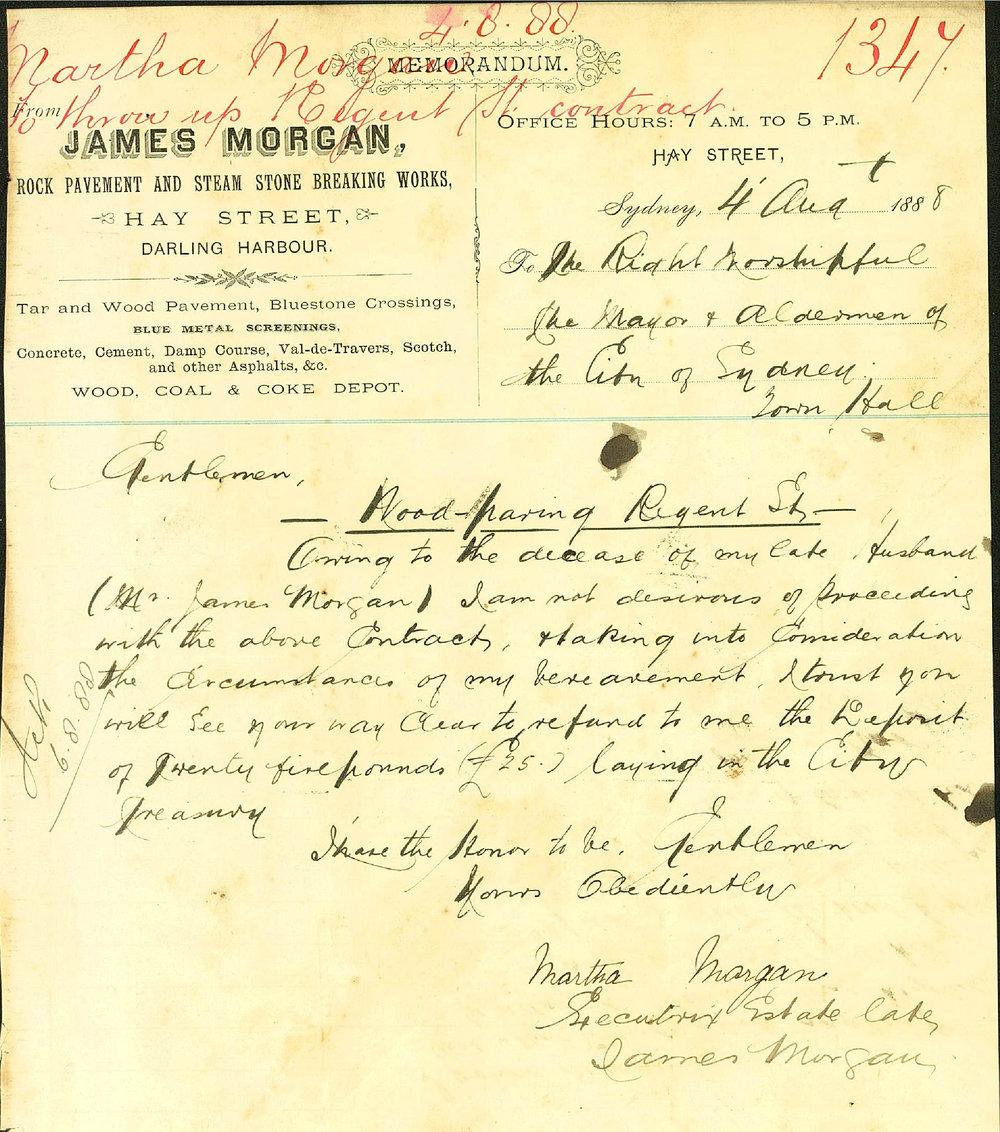 4.8.88.
Martha Morgan
1347.
MEMORANDUM.
To throw up Regent St. contract.
From
JAMES MORGAN,
ROCK PAVEMENT AND STEAM STONE BREAKING WORKS,
HAY STREET,
DARLING HARBOUR.
Tar and Wood Pavement, Bluestone Crossings,
BLUE METAL SCREENINGS,
Concrete, Cement, Damp Course, Val-de-Travers, Scotch,
and other Asphalts, &c.
WOOD, COAL & COKE DEPOT.
OFFICE HOURS: 7 A.M. TO 5 P.M.
HAY STREET,
Sydney, 4 Aug 1888
To The Right Worshipful
The Mayor & Aldermen of
the City of Sydney.
Town Hall
Gentlemen,
— Wood-paving Regent St, —
Owing to the decease of my late Husband
(Mr. James Morgan) I am not desirous of Proceeding
with the above Contract, & taking into Consideration
the Circumstances of my bereavement, I trust you
will See your way Clear to refund to me the Deposit
of Twenty five pounds (£25.) laying in the City
Treasury
I have the Honor to be, Gentlemen
Yours Obediently
Martha Morgan
Executrix Estate late
James Morgan
6.8.88